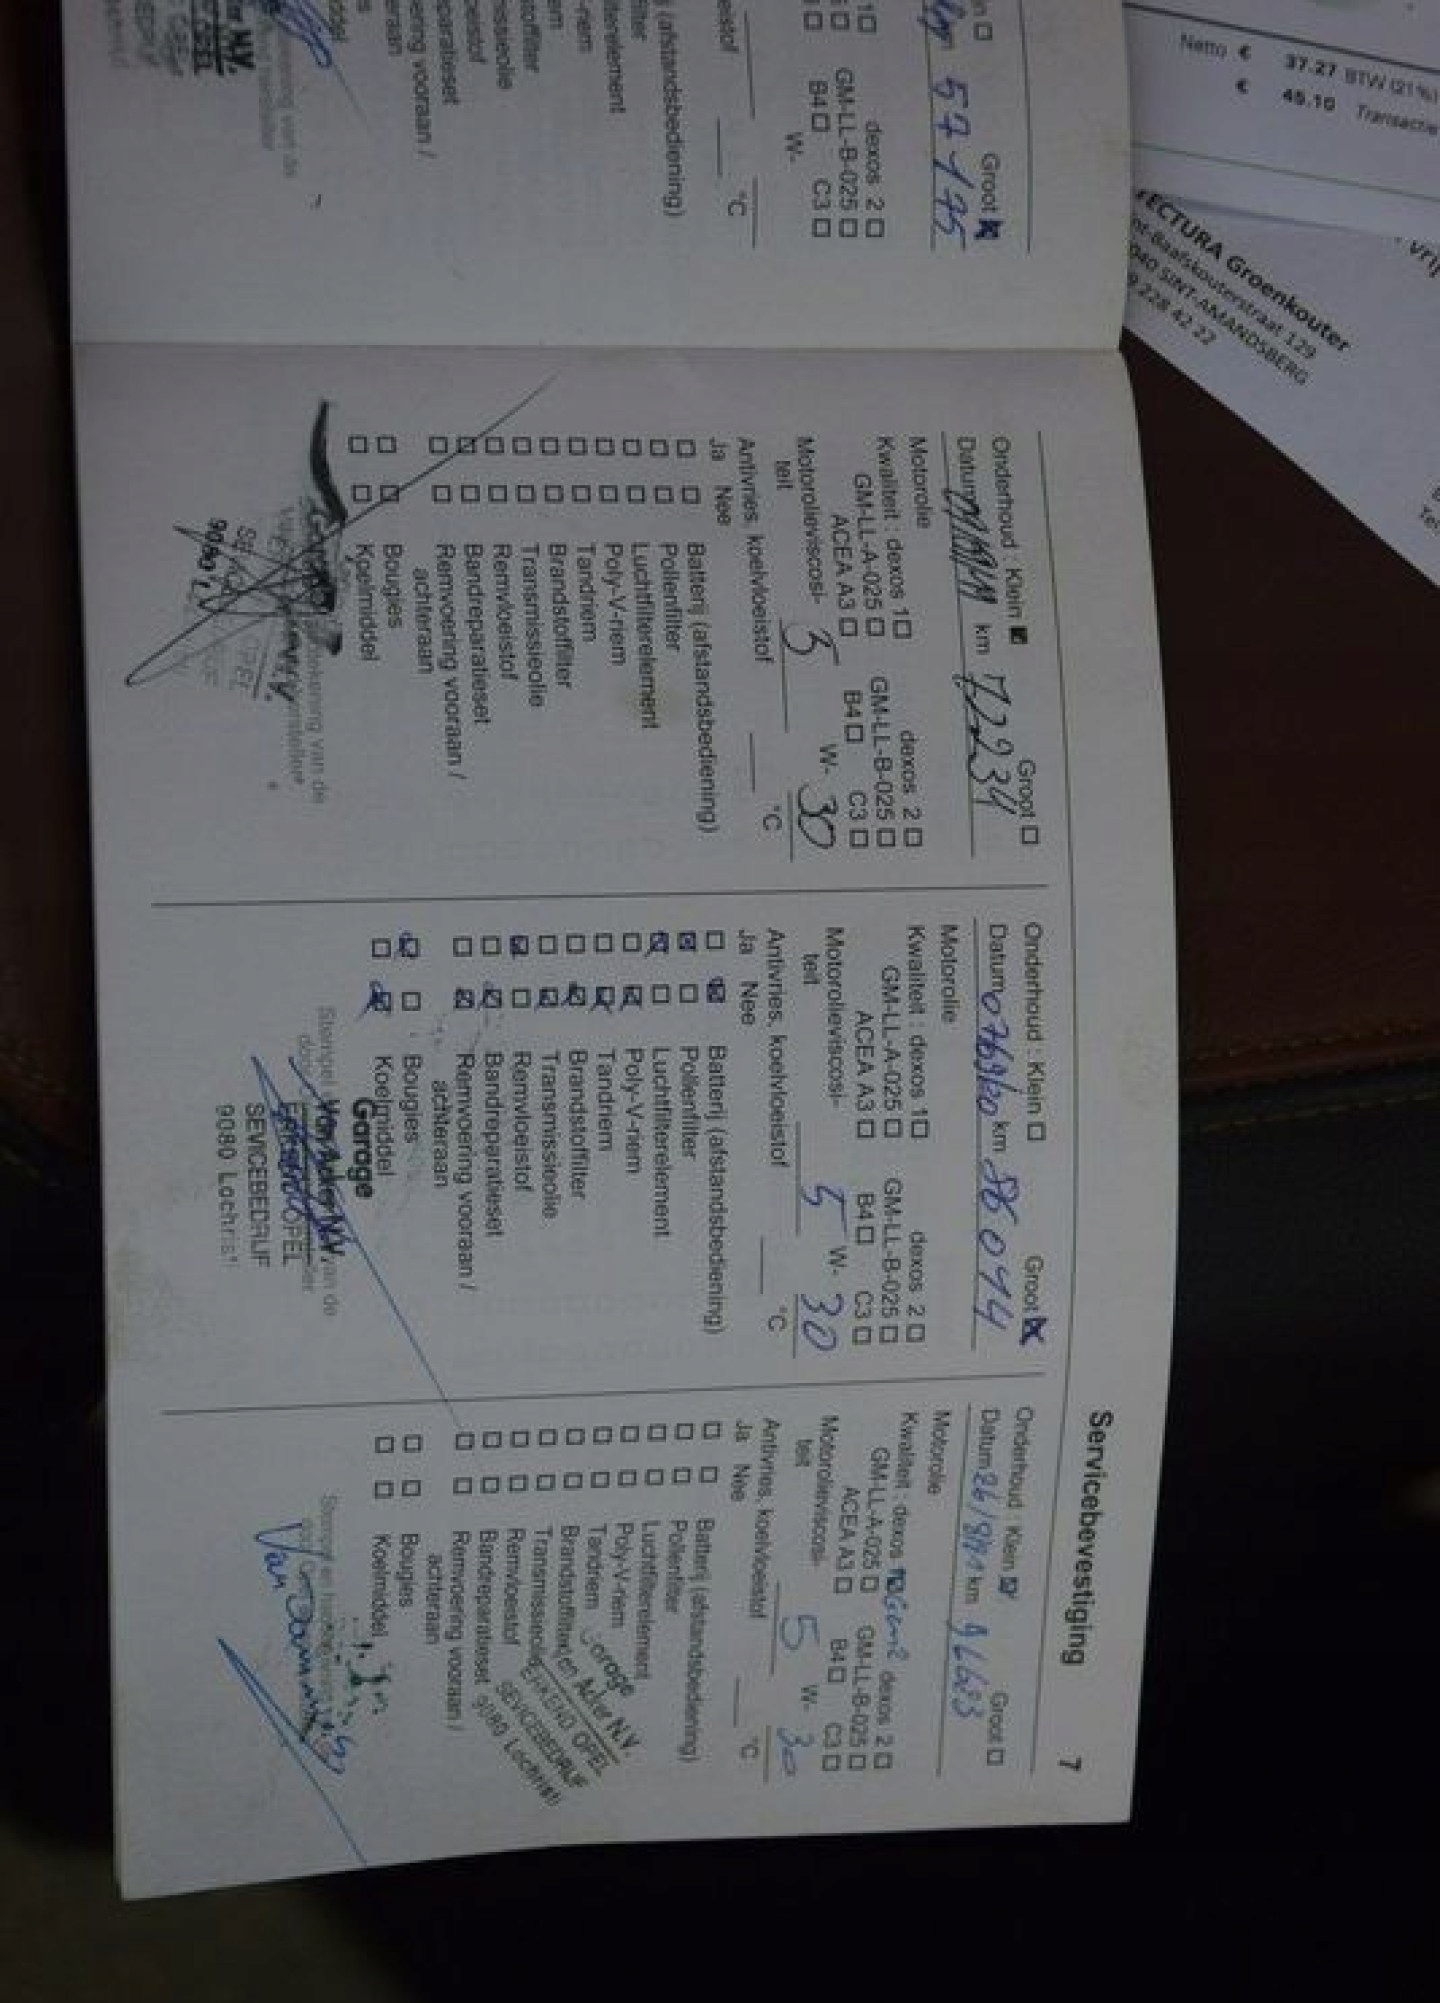 Netto € 37.27 BTW (21%)
€ 45.10 Transactie
TECTURA Groenkouter
nt-Baafskouterstraat 129
040 SINT-AMANDSBERG
9 228 42 22
Groot ☒
57175
dexos 2 ☐
GM-LL-B-025 ☐
B4 ☐ C3 ☐
W-
°C
(afstandsbediening)
Servicebevestiging 7
Onderhoud : Klein ☑ Groot ☐
Datum km 72234
Motorolie
Kwaliteit : dexos 1 ☐ dexos 2 ☐
GM-LL-A-025 ☐ GM-LL-B-025 ☐
ACEA A3 ☐ B4 ☐ C3 ☐
Motorolieviscosi-
teit 5 W- 30
Antivries, koelvloeistof °C
Ja Nee
☐ ☐ Batterij (afstandsbediening)
☐ ☐ Pollenfilter
☐ ☐ Luchtfilterelement
☐ ☐ Poly-V-riem
☐ ☐ Tandriem
☐ ☐ Brandstoffilter
☐ ☐ Transmissieolie
☐ ☐ Remvloeistof
☐ ☐ Bandreparatieset
☐ ☐ Remvoering vooraan /
achteraan
☐ ☐ Bougies
☐ ☐ Koelmiddel
Onderhoud : Klein ☐ Groot ☒
Datum 07/09/20 km 86014
Motorolie
Kwaliteit : dexos 1 ☐ dexos 2 ☐
GM-LL-A-025 ☐ GM-LL-B-025 ☐
ACEA A3 ☐ B4 ☐ C3 ☐
Motorolieviscosi-
teit 5 W- 30
Antivries, koelvloeistof °C
Ja Nee
☐ ☒ Batterij (afstandsbediening)
☒ ☐ Pollenfilter
☒ ☐ Luchtfilterelement
☐ ☒ Poly-V-riem
☐ ☒ Tandriem
☐ ☒ Brandstoffilter
☐ ☒ Transmissieolie
☒ ☐ Remvloeistof
☐ ☒ Bandreparatieset
☐ ☒ Remvoering vooraan /
achteraan
☒ ☐ Bougies
☐ ☒ Koelmiddel
Garage
Van Acker N.V.
OPEL
SEVICEBEDRIJF
9080 Lochristi
Onderhoud : Klein ☑ Groot ☐
Datum km
Motorolie
Kwaliteit : dexos 1 Gen2 dexos 2 ☐
GM-LL-A-025 ☐ GM-LL-B-025 ☐
ACEA A3 ☐ B4 ☐ C3 ☐
Motorolieviscosi-
teit 5 W- 30
Antivries, koelvloeistof °C
Ja Nee
☐ ☐ Batterij (afstandsbediening)
☐ ☐ Pollenfilter
☐ ☐ Luchtfilterelement
☐ ☐ Poly-V-riem
☐ ☐ Tandriem
☐ ☐ Brandstoffilter
☐ ☐ Transmissieolie
☐ ☐ Remvloeistof
☐ ☐ Bandreparatieset
☐ ☐ Remvoering vooraan /
achteraan
☐ ☐ Bougies
☐ ☐ Koelmiddel
Garage
Van Acker N.V.
ERKEND OPEL
SEVICEBEDRIJF
9080 Lochristi